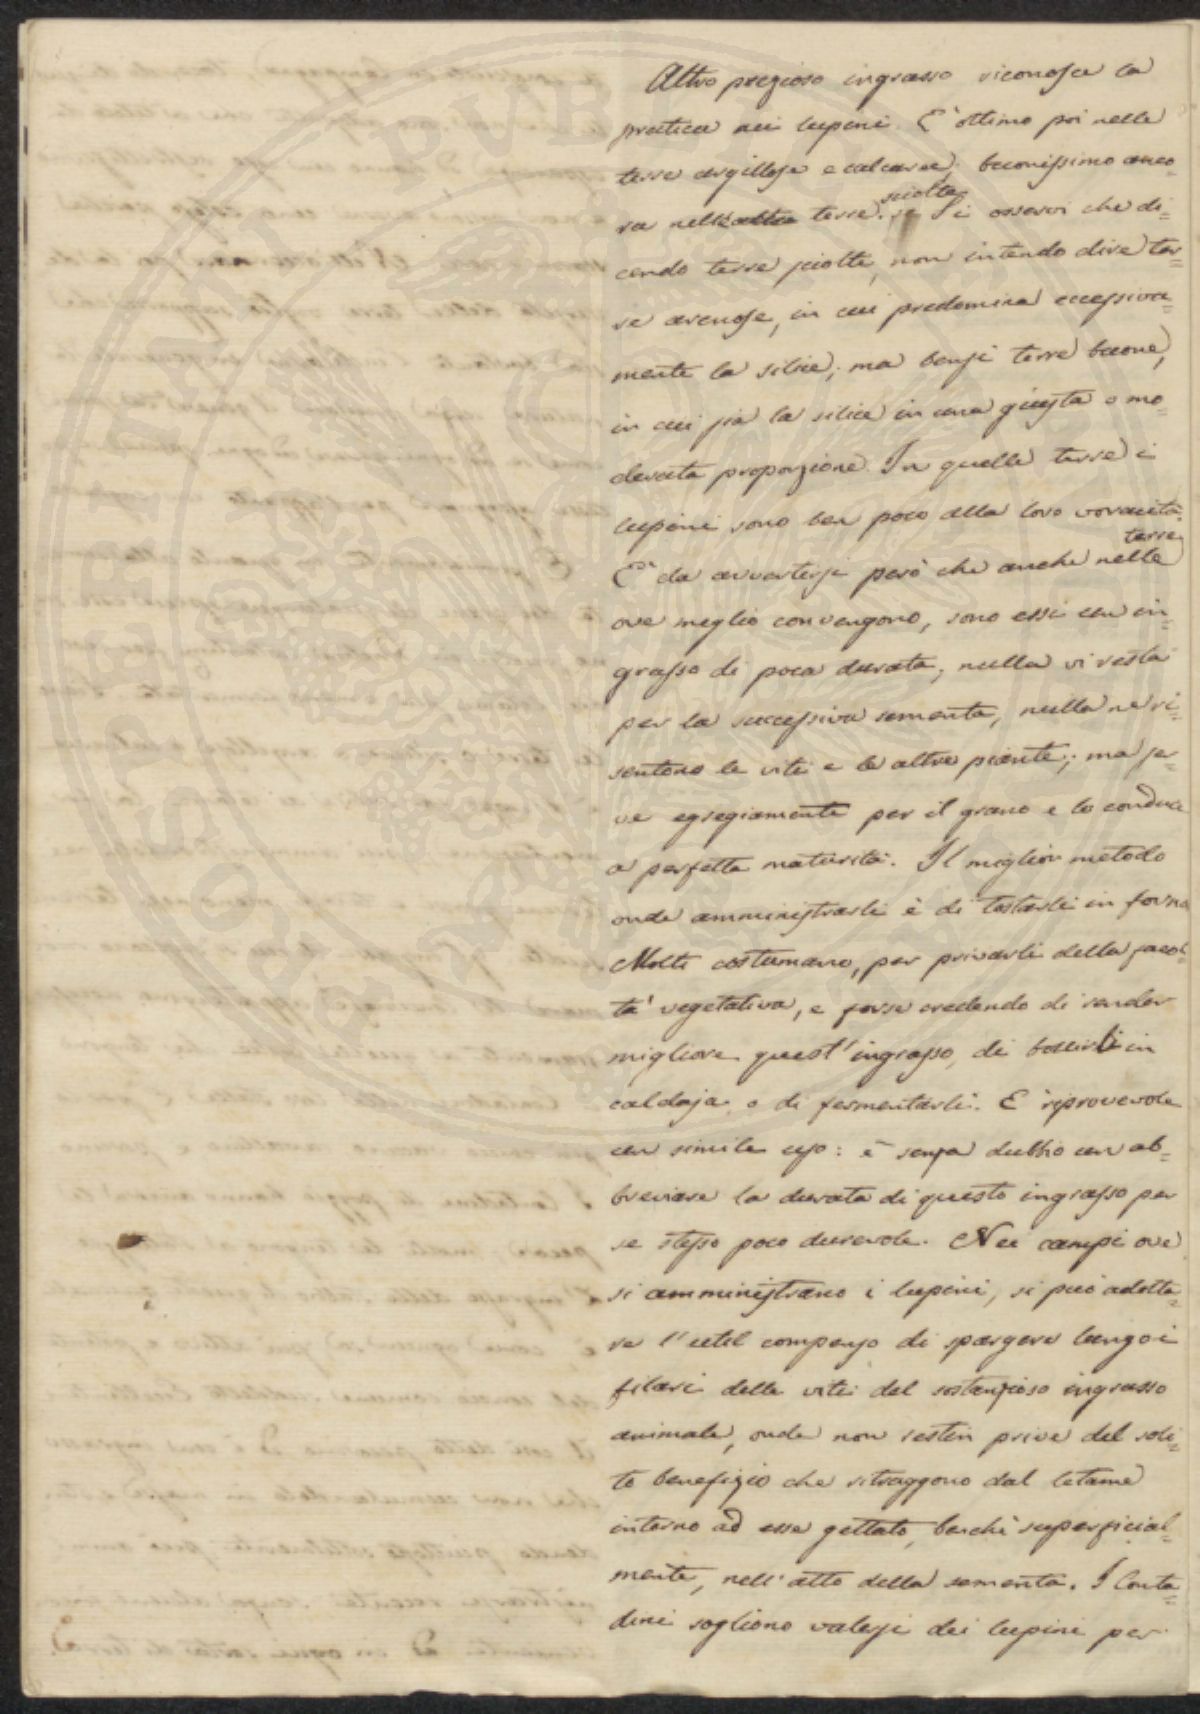 Altro prezioso ingrasso riconosce la
pratica nei lupini. E' ottimo poi nelle
terre argillose e calcaree; buonissimo anco=
ra nell'altre terre sciolte. Si osservi che di=
cendo terre sciolte, non intendo dire ter=
re arenose, in cui predomina eccessiva=
mente la silice; ma bensi terre buone,
in cui sia la silice in una giusta o mo=
derata proporzione. In quelle terre i
lupini sono ben poco alla loro voracità.
E' da avvertirsi però che anche nelle terre
ove meglio convengono, sono essi un in=
grasso di poca durata; nulla vi resta
per la successiva sementa, nulla ne ri=
sentono le viti e le altre piante; ma ser=
ve egregiamente per il grano e lo conduce
a perfetta maturità. Il miglior metodo
onde amministrarli è di tostarli in forno
Molti costumano, per privarli della facol=
ta' vegetativa, e forse credendo di render
migliore quest'ingrasso, di bollirli in
caldaja o di fermentarli. E' riprovevole
un simile uso: è senza dubbio un ab=
breviare la durata di questo ingrasso per
se stesso poco durevole. Nei campi ove
si amministrano i lupini, si può adotta=
re l'util compenso di spargere lungo i
filari delle viti del sostanzioso ingrasso
animale, onde non restin prive del soli=
to benefizio che ritraggono dal letame
intorno ad esse gettato, benchè superficial=
mente, nell'atto della sementa. I Conta=
dini sogliono valersi dei lupini per